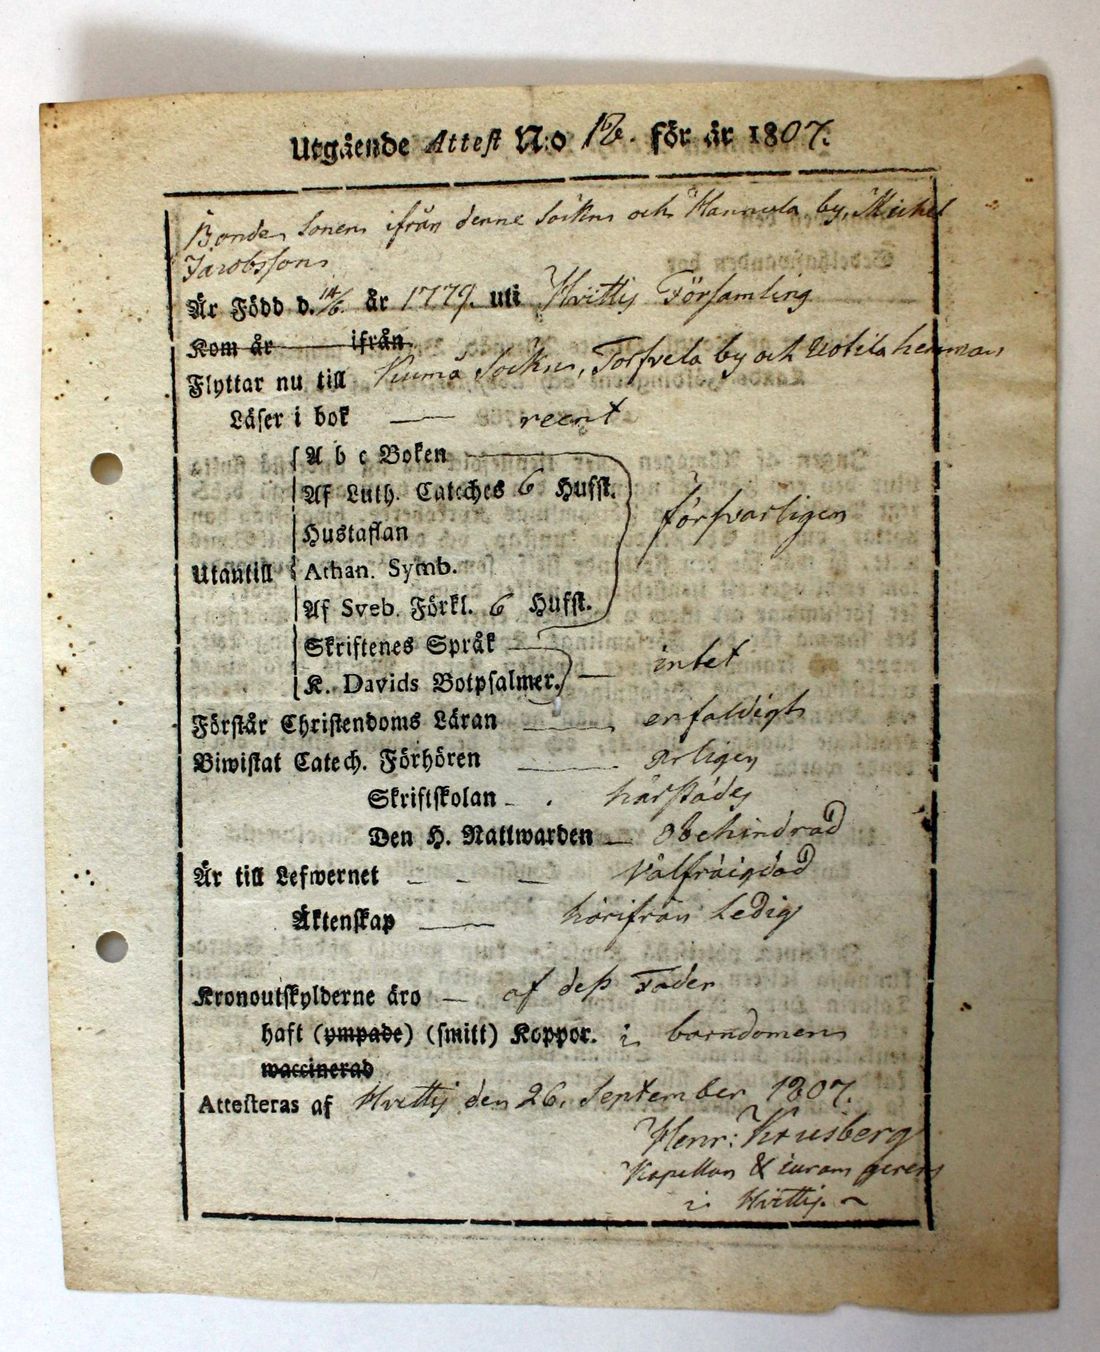 Utgående Attest N:o 12. för år 1807.
Bonde Sonen ifrån denne Sockn och Kannula by, Michel
Jacobsson
Är Född d. 14/6. år 1779. uti Hvittis Församling
Kom år ifrån
Flyttar nu till Kiumo Sockn, Torfvela by och Uotila hemman
Läser i bok — reent
A b c Boken
Af Luth. Cateches 6 Hufst.
Hustaflan försvarligen
Utantill Athan. Symb.
Af Sveb. Förkl. 6 Hufst.
Skriftenes Språk
K. Davids Botpsalmer. — intet
Förstår Christendoms Läran — enfaldigt
Biwistat Catech. Förhören — årligen
Skriftskolan - . härstädes
Den H. Nattwarden — obehindrad
Är till Lefwernet - - — välfräigdad
Äktenskap — härifrån Ledig
Kronoutskylderne äro — af dess Fader
haft (ympade) (smitt) Koppor. i barndomen
waccinerad
Attesteras af Hvittis den 26. September 1807.
Henr: Krusberg
Kapellan & curam gerens
i Hvittis.